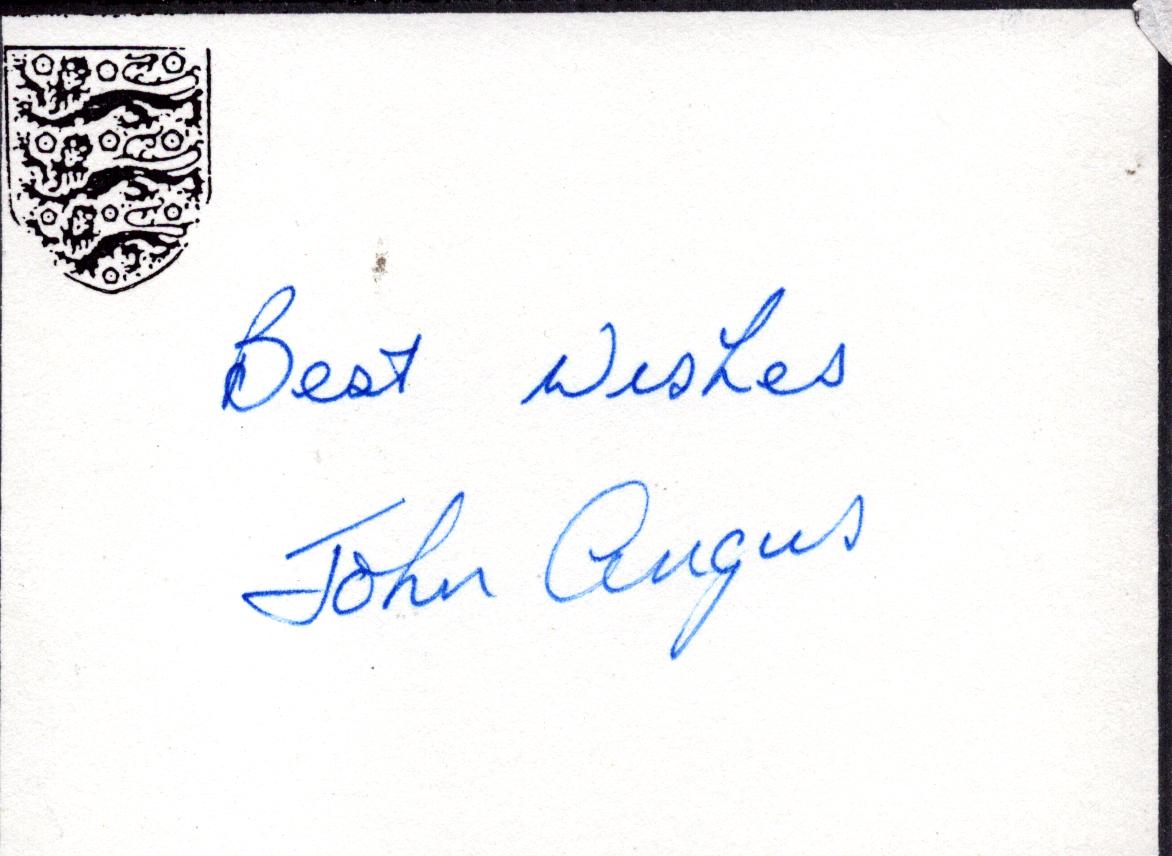 Best Wishes
John Angus